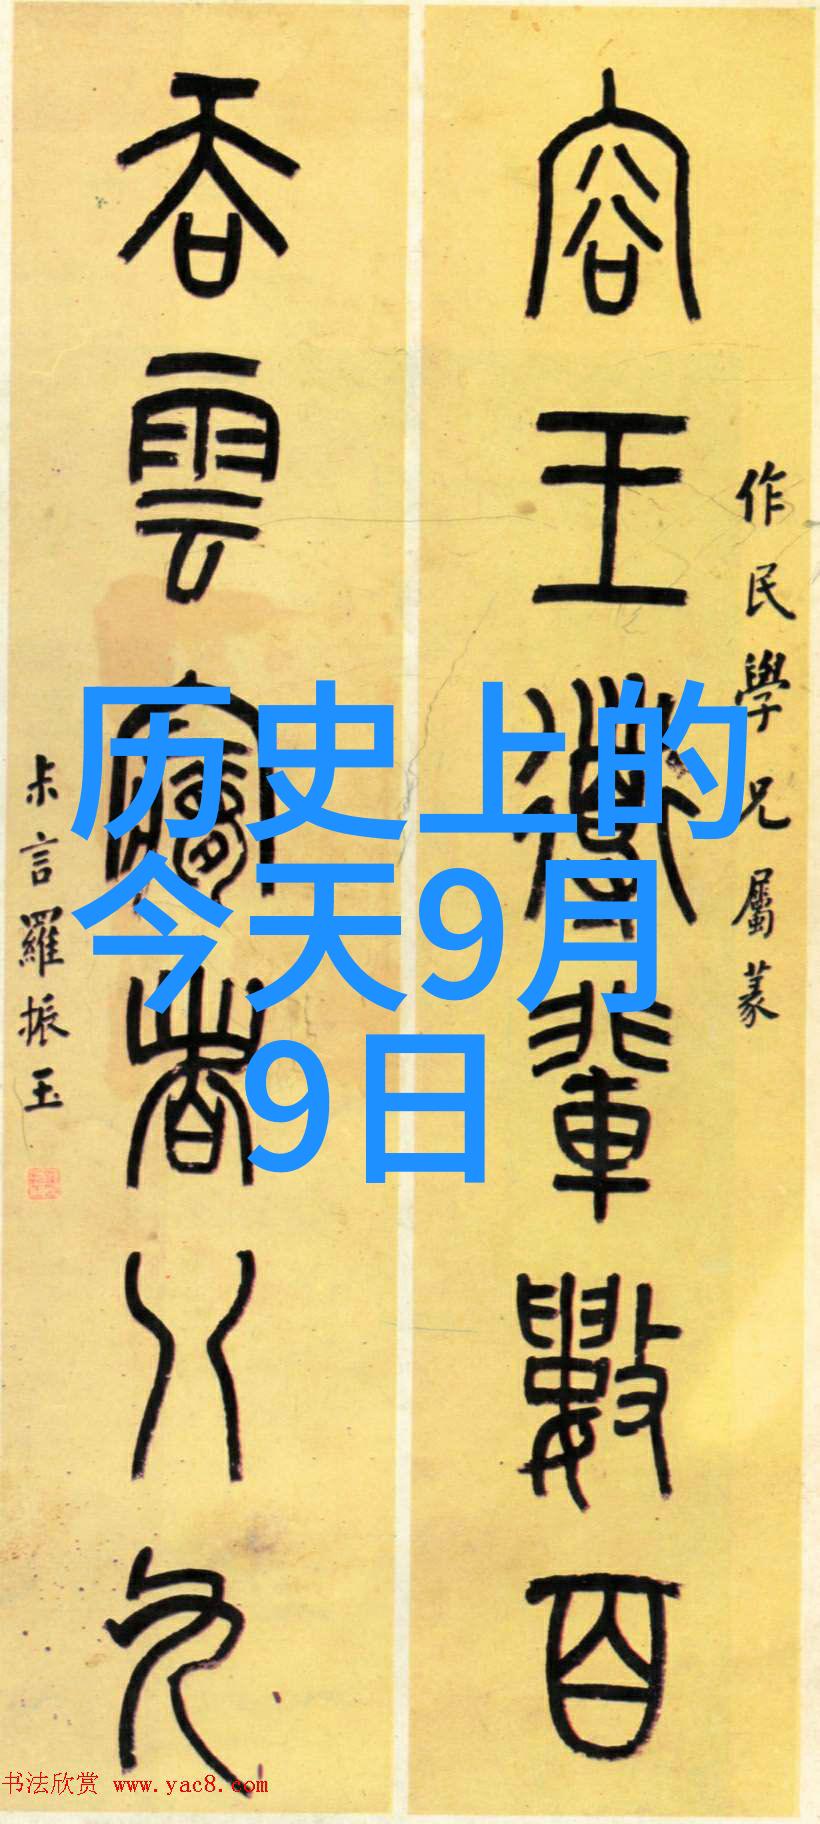 作民學兄屬篆
容王導輩數百
吞雲夢者八九
尗言羅振玉
历史上的
今天9月
9日
书法欣赏 www.yac8.com